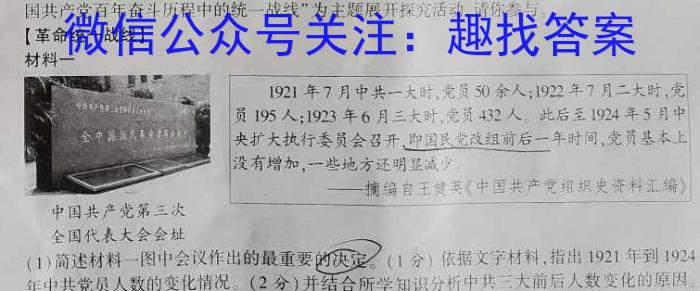 国共产党百年奋斗历程中的统一战线”为主题展开探究活动,请你参与。
【革命统一战线】
微信公众号关注：趣找答案
材料一
全中国国民革命
中国共产党第三次
全国代表大会会址
1921年7月中共一大时,党员50余人;1922年7月二大时,党
员195人;1923年6月三大时,党员432人。此后至1924年5月中
央扩大执行委员会召开,即国民党改组前后一年时间,党员基本上
没有增加,一些地方还明显减少。
——摘编自王健英《中国共产党组织史资料汇编》
(1)简述材料一图中会议作出的最重要的决定。(1分)依据文字材料,指出1921年到1924
年中共党员人数的变化情况。(2分)并结合所学知识分析中共三大前后人数变化的原因。